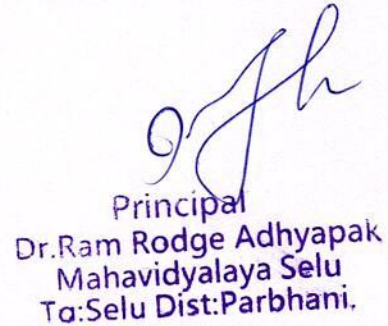 Principal
Dr.Ram Rodge Adhyapak
Mahavidyalaya Selu
Ta:Selu Dist:Parbhani.